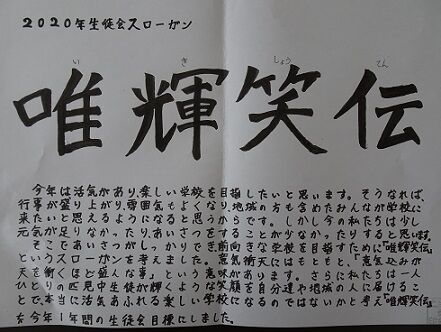 2020年生徒会スローガン
い き しょう てん
唯輝笑伝
今年は活気があり、楽しい学校を目指したいと思います。そうなれば、
行事が盛り上がり、雰囲気もよくなり、地域の方も含めたみんなが学校に
来たいと思えるようになると思うからです。しかし今の私たちは少し
元気が足りなかったり、あいさつをすることが少なかったりすると思います。
そこであいさつがしっかりでき、前向きな学校を目指すために『唯輝笑伝』
というスローガンを考えました。意気衝天にはもともと、「意気込みが
天を衝くほど盛んな事」という意味があります。さらに私たちは一人
ひとりの匹見中生徒が輝くような笑顔を自分達や地域の人に届けるこ
とで、本当に活気あふれる楽しい学校になるのではないかと考え『唯輝笑伝』
を今年1年間の生徒会目標にしました。